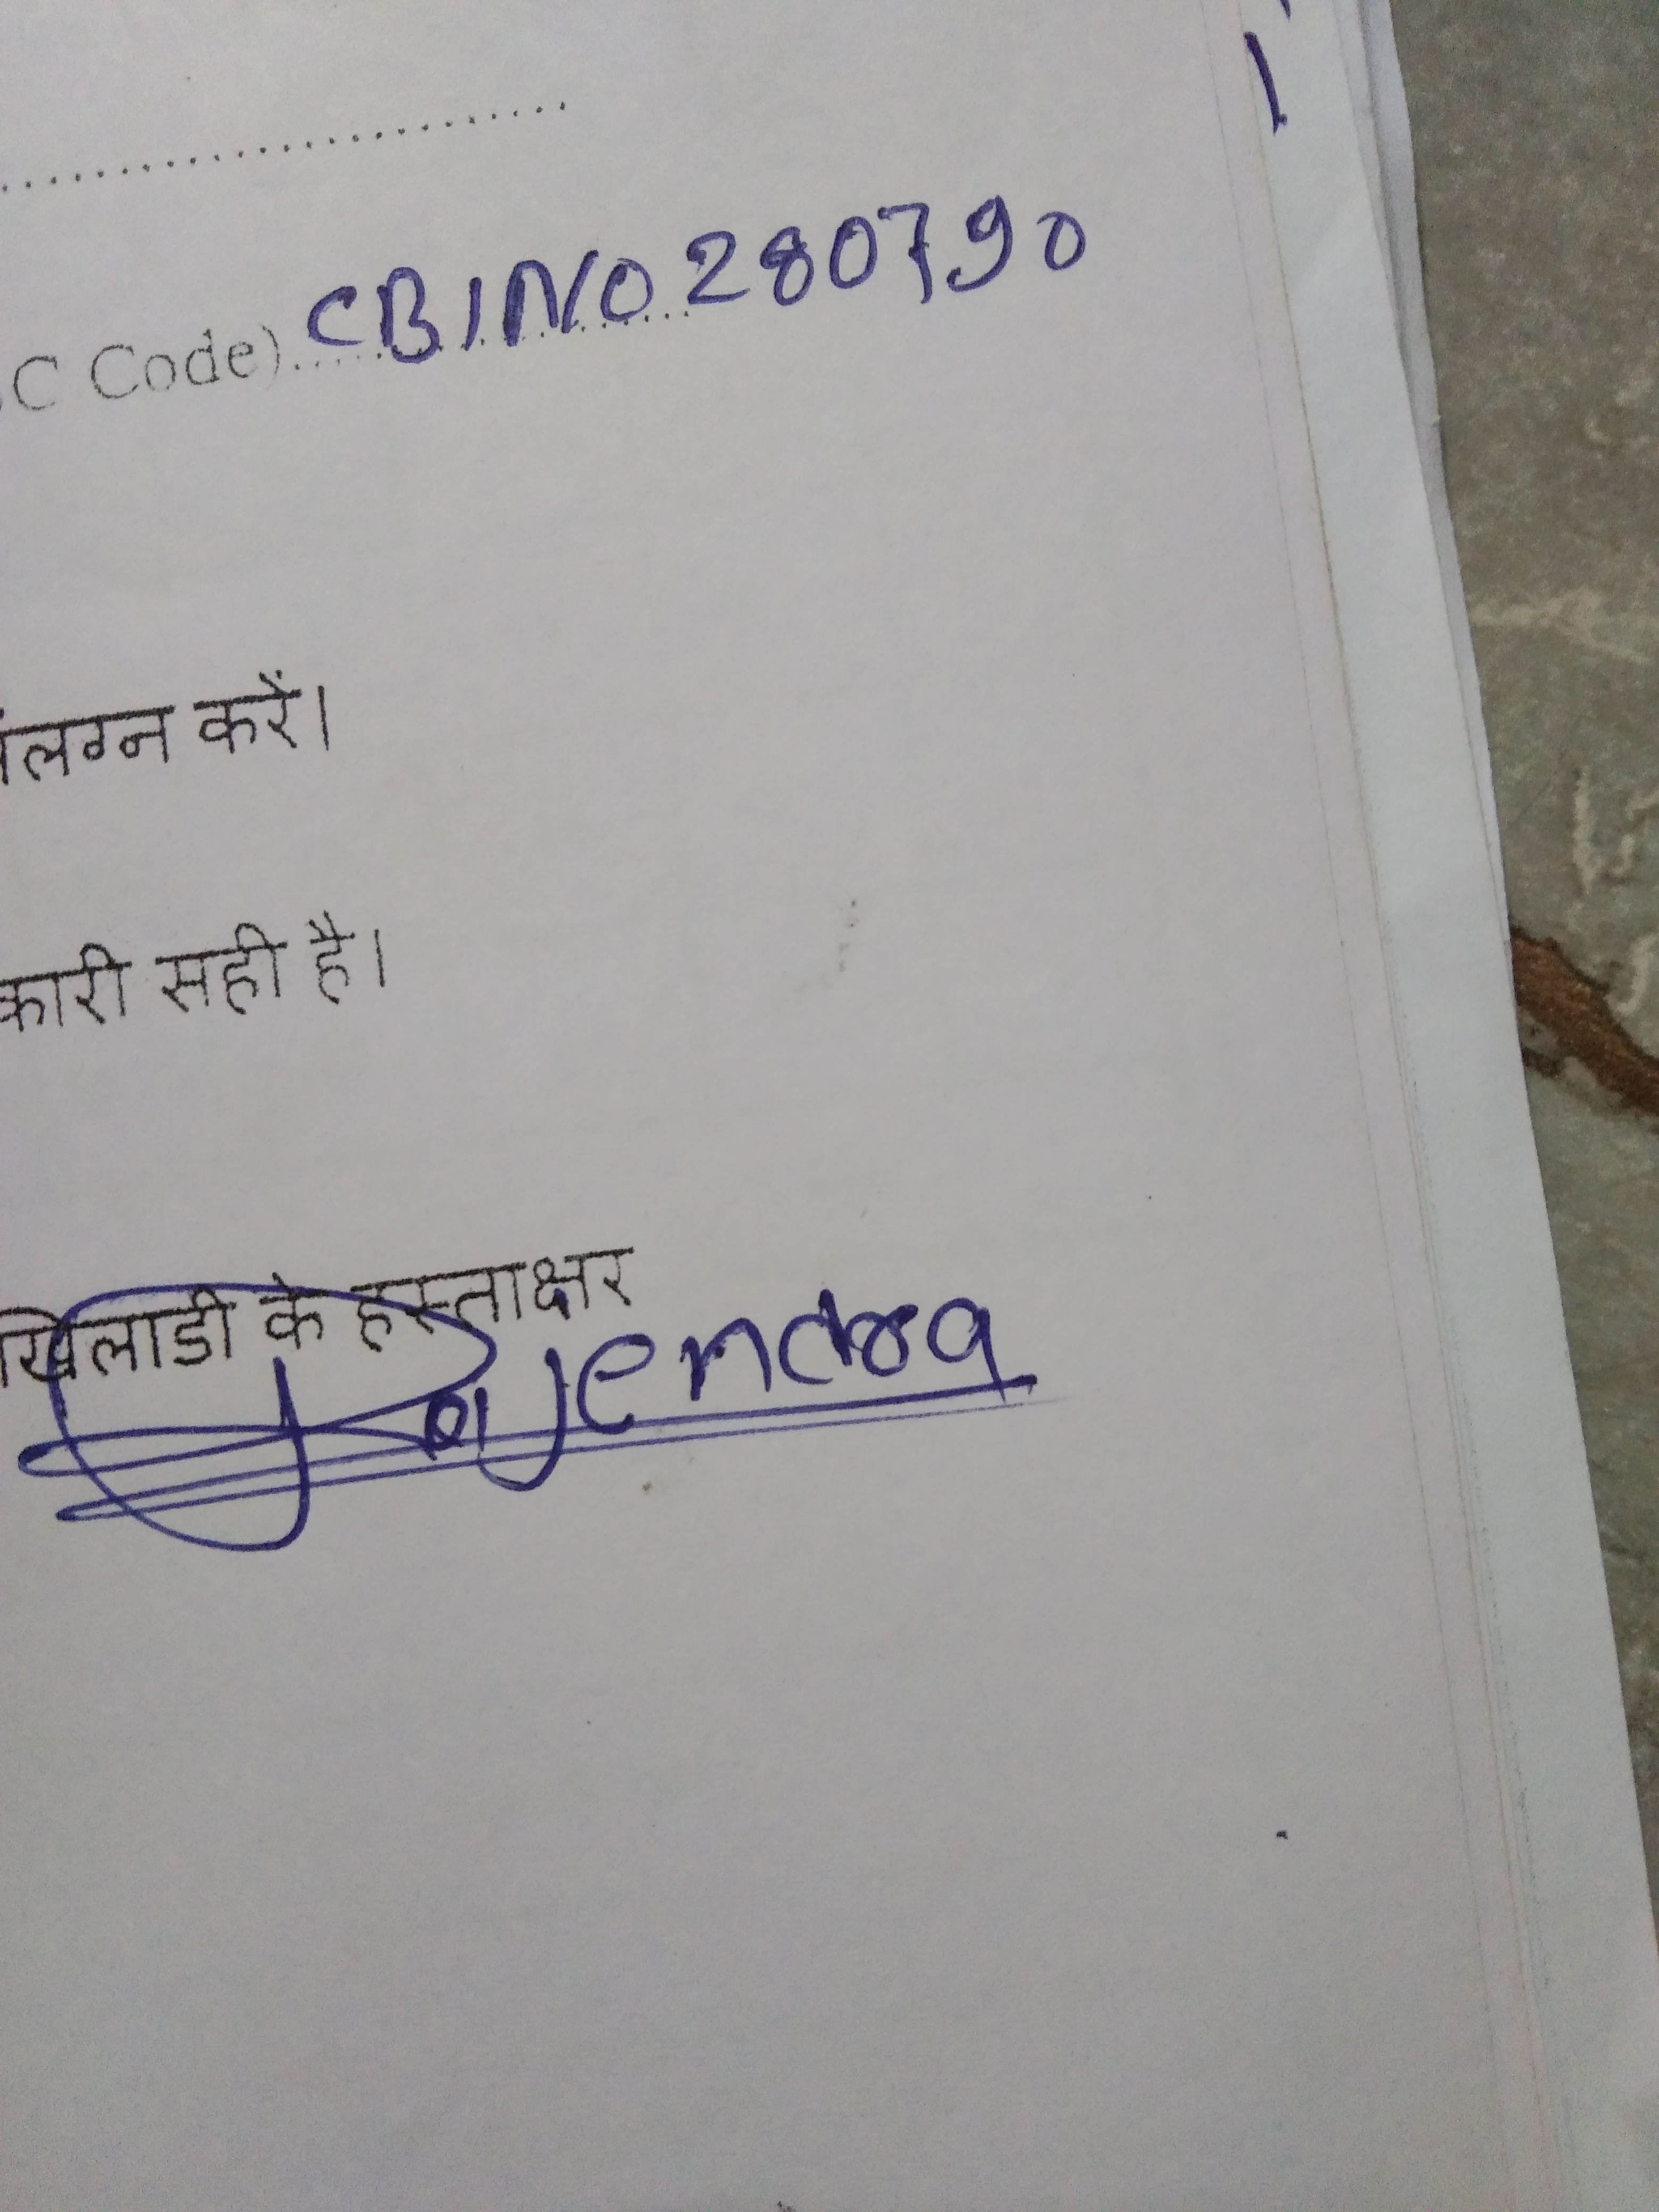 C Code) CBIN0280790
संलग्न करें।
कारी सही है।
खिलाडी के हस्ताक्षर
Rajendra